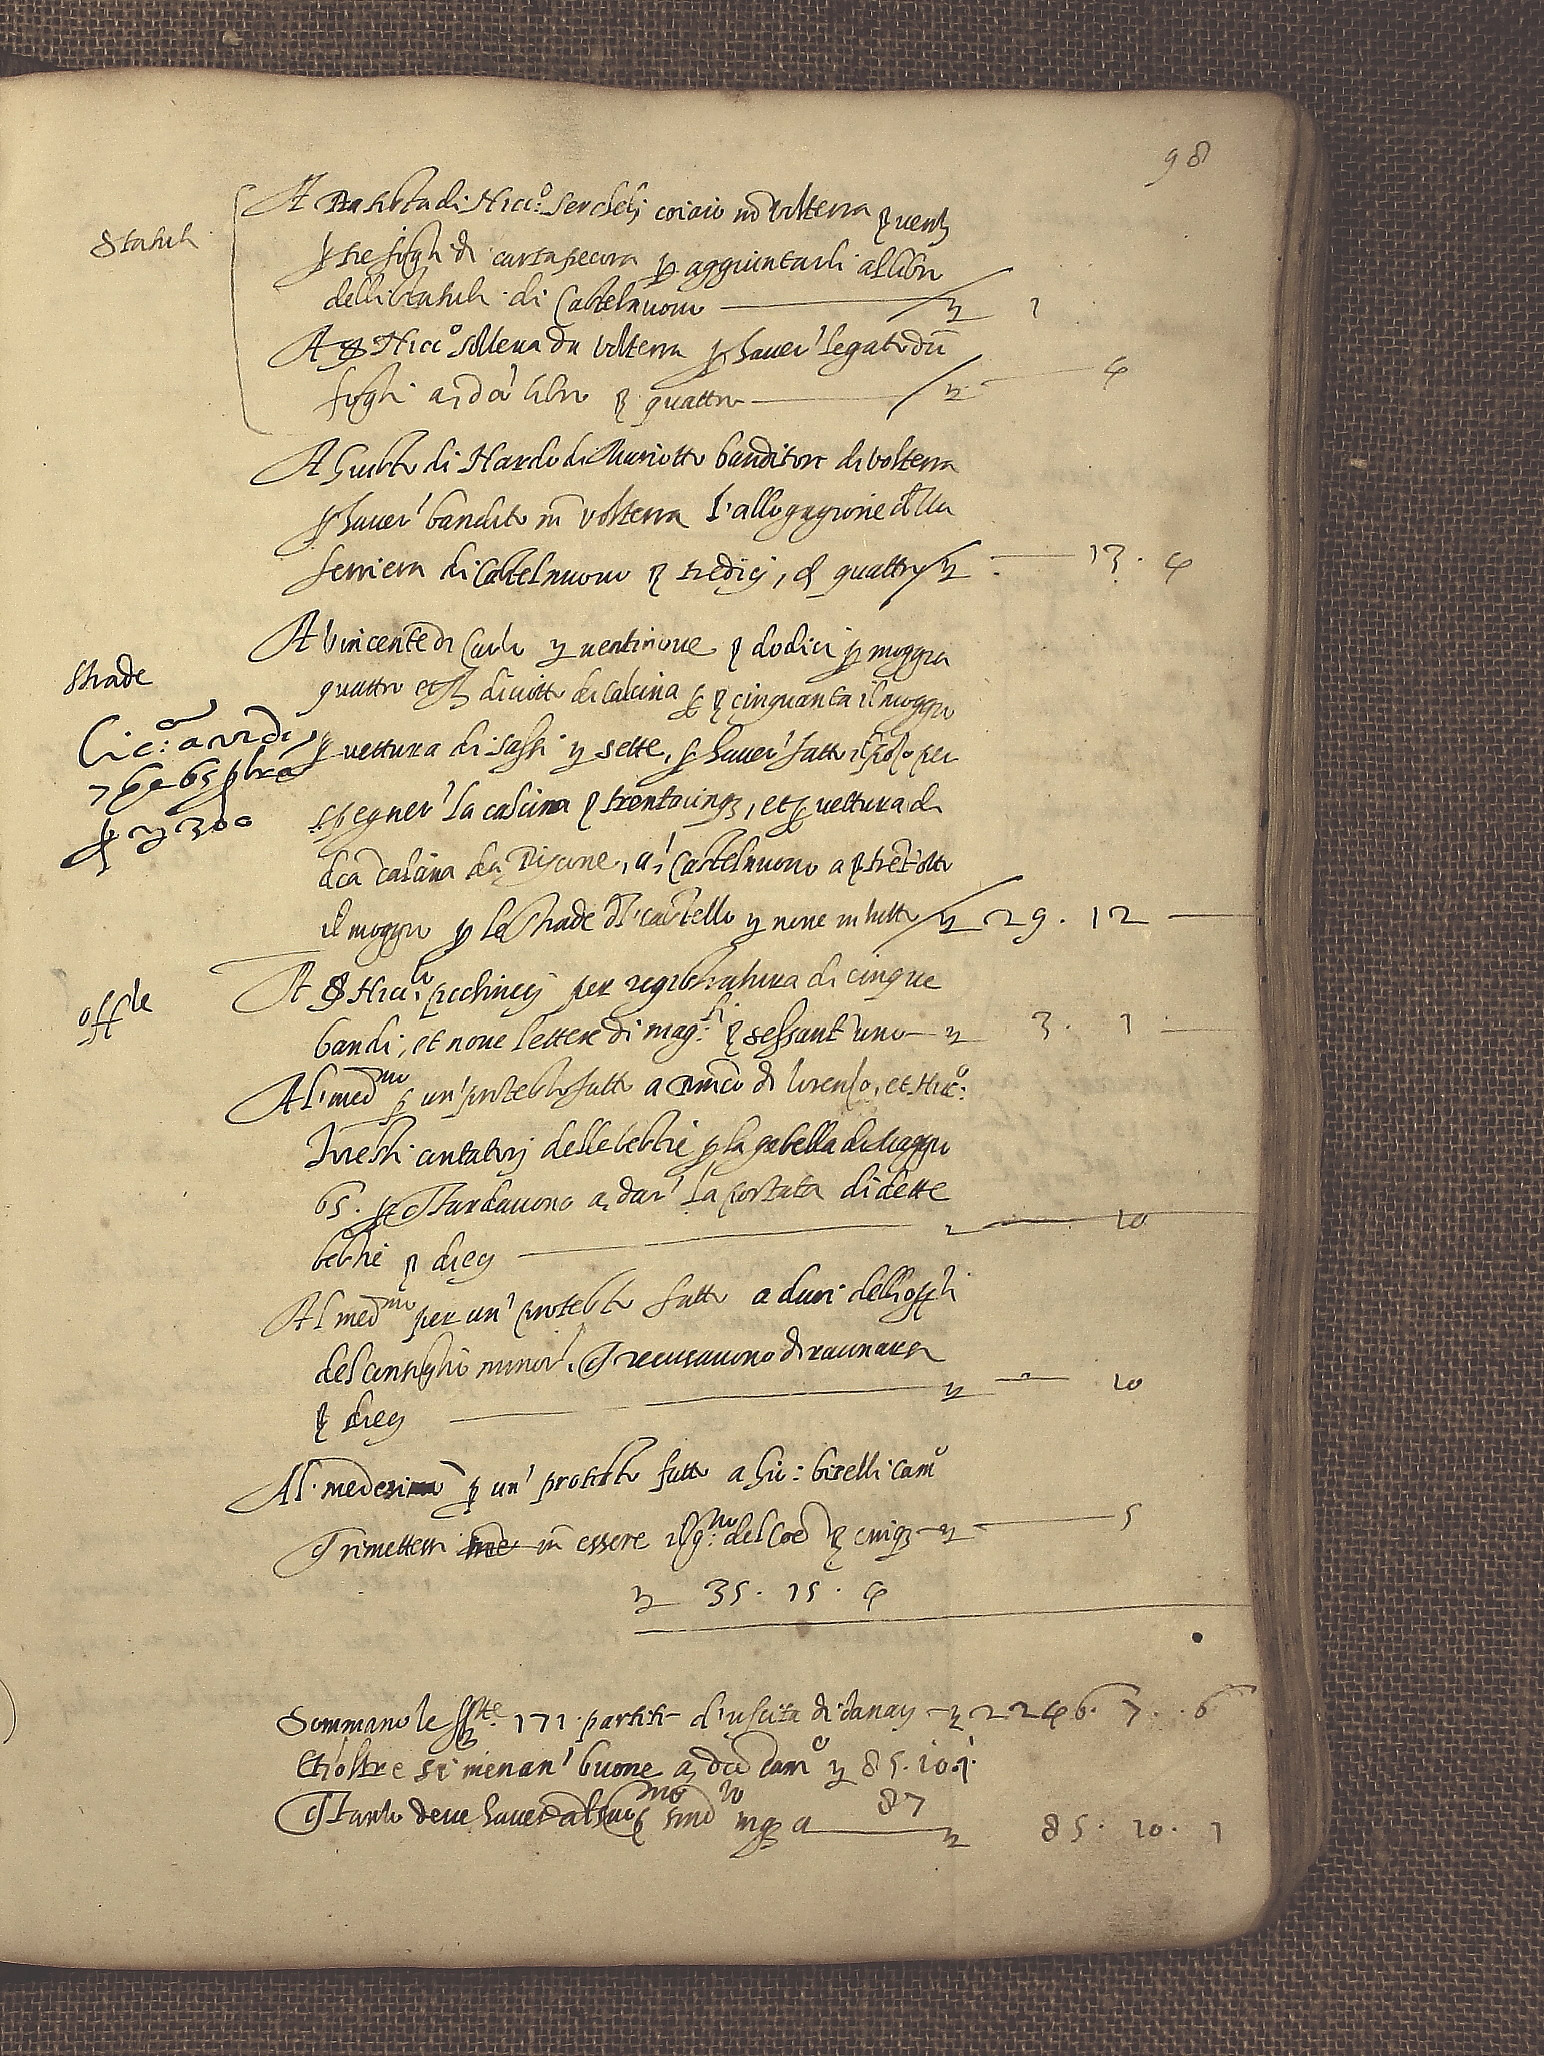 98
Statuti
A Battista di Nicc.o Sercleli coiaio in volterra ∫ venti
p tre fogli di cartapecora p aggiuntarli al libro
delli statuti di Castelnuovo — £ 1
A Nicc.o sollena da volterra p haver' legato dti
fogli a, do libro ∫ quattro — £ — 4
A Giusto di Nardo di Mariotto banditore di volterra
p haver' bandito in volterra l'allogagione della
ferriera di Castelnuovo ∫ tredici, d quattro £ — 13. 4
strade
Lic.a a vidi
p £ 300
A Vincente di Carlo £ ventinove ∫ dodici p moggia
quattro et diciotto di calcina p ∫ cinquanta il moggio
p vettura di sassi £ sette, p haver' fatto il per
spegner' la calcina ∫ trentacinq, et p vettura di
dca calcina da, a, Castelnuovo a ∫ trentotto
il moggio p le strade del castello £ nove in tutto £ 29. 12 —
off.le
A Nicc.o picchinesi per registratura di cinque
bandi, et nove lettere di mag.ti ∫ sessant'uno — £ 3. 1 —
Al med.mo p un' protesto fatto a di lorenzo, et Nicc.o:
cantatori delle bestie p la gabella di Maggio
65. p tardavono a, dar' la portata di dette
bestie ∫ dieci — 10
Al med.mo per un' protesto fatto a dua delli
del consiglio minor'. recusavono di raunarsi
∫ dieci — £ — 10
Al medesimo p un' protesto fatto a Gio: birelli cam.o
rimettersi in essere del Coe ∫ cinq — £ — 5
£ 35. 15. 4
Sommano le 171. partite d'uscita di danari — £ 2246. 7. 6
Et oltre si menan' buone a, do cam.o £ 85. 10. 1.
tanto deve haver dal suo in q.o a 87 — £ 85. 10. 1